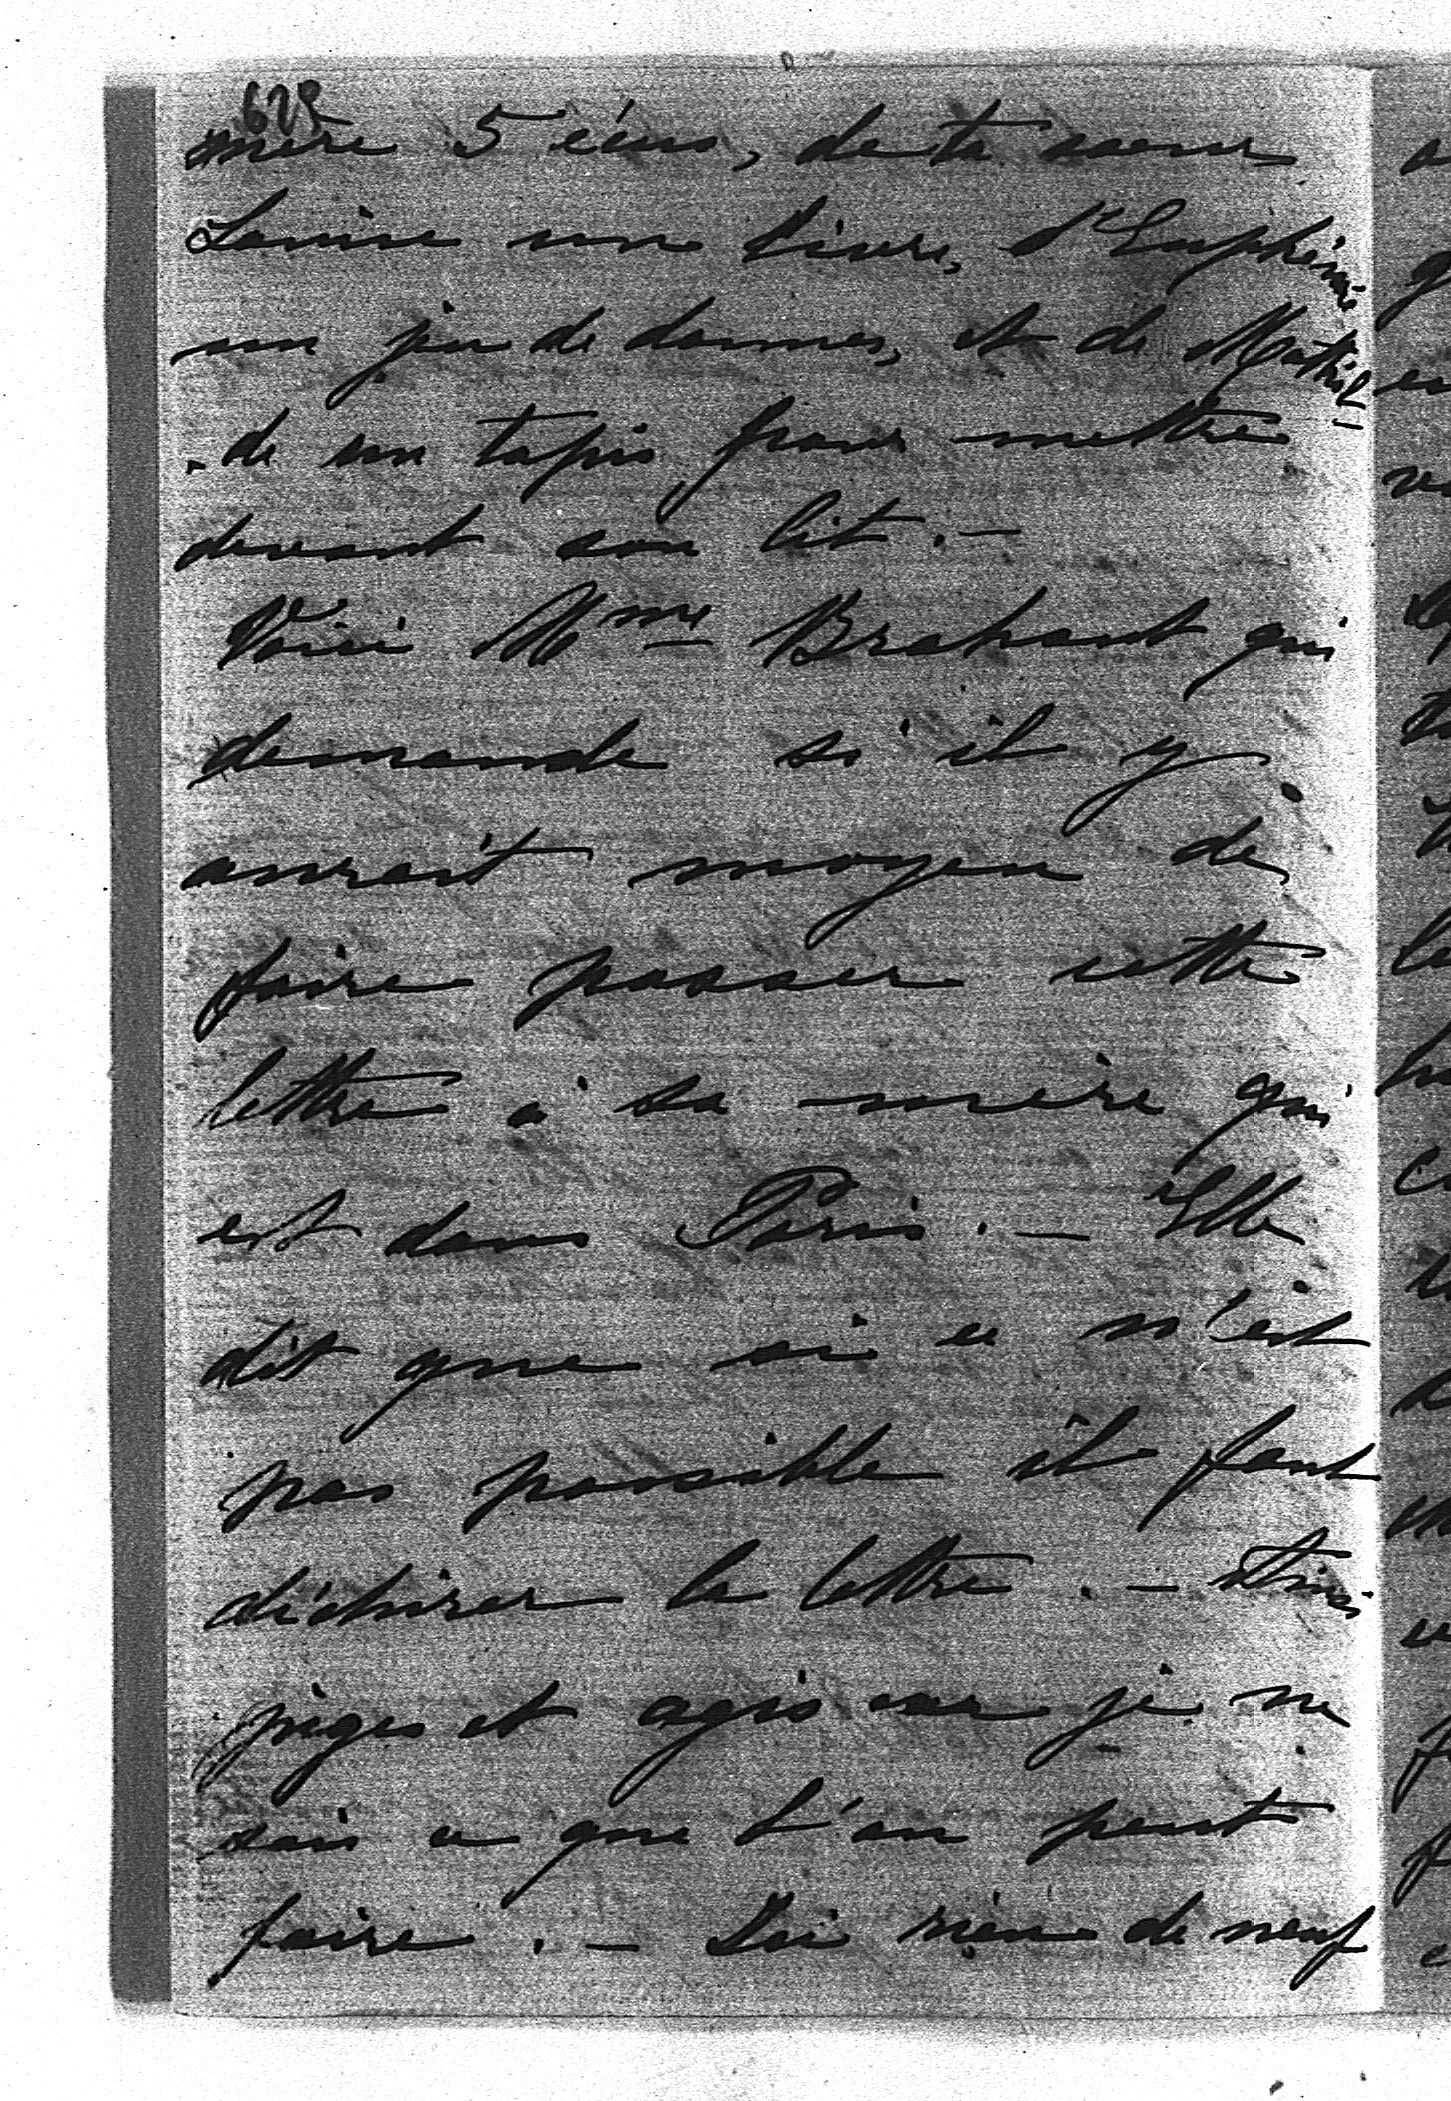 629
mère 5 écus, de ta soeur
Louise un livre, d'Euphémie
un jeu de dames, et de Mathil-
-de un tapis pour mettre
devant son lit. -
Voici Mme Brahant qui
demande si il y
aurait moyen de
faire passer cette
lettre à sa mère qui
est dans Paris. - Elle
dit que si ce n'est
pas possible il faut
déchirer la lettre. - Ainsi
juges et agis car je ne
sais ce que l'on peut
faire. - Ici rien de neuf